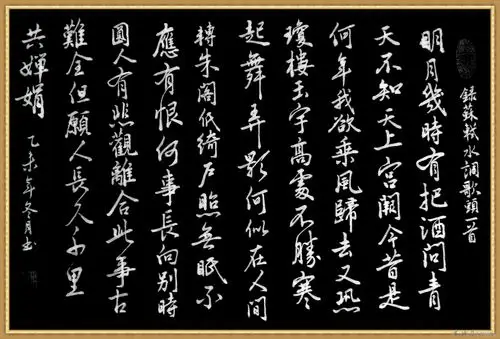 錄蘇軾水調歌頭一首
明月幾時有把酒問青
天不知天上宮闕今昔是
何年我欲乘風歸去又恐
瓊樓玉宇高處不勝寒
起舞弄影何似在人間
轉朱阁低綺戶照無眠不
應有恨何事長向別時
圓人有悲觀離合此事古
難全但願人長久千里
共嬋娟
乙未年冬月書